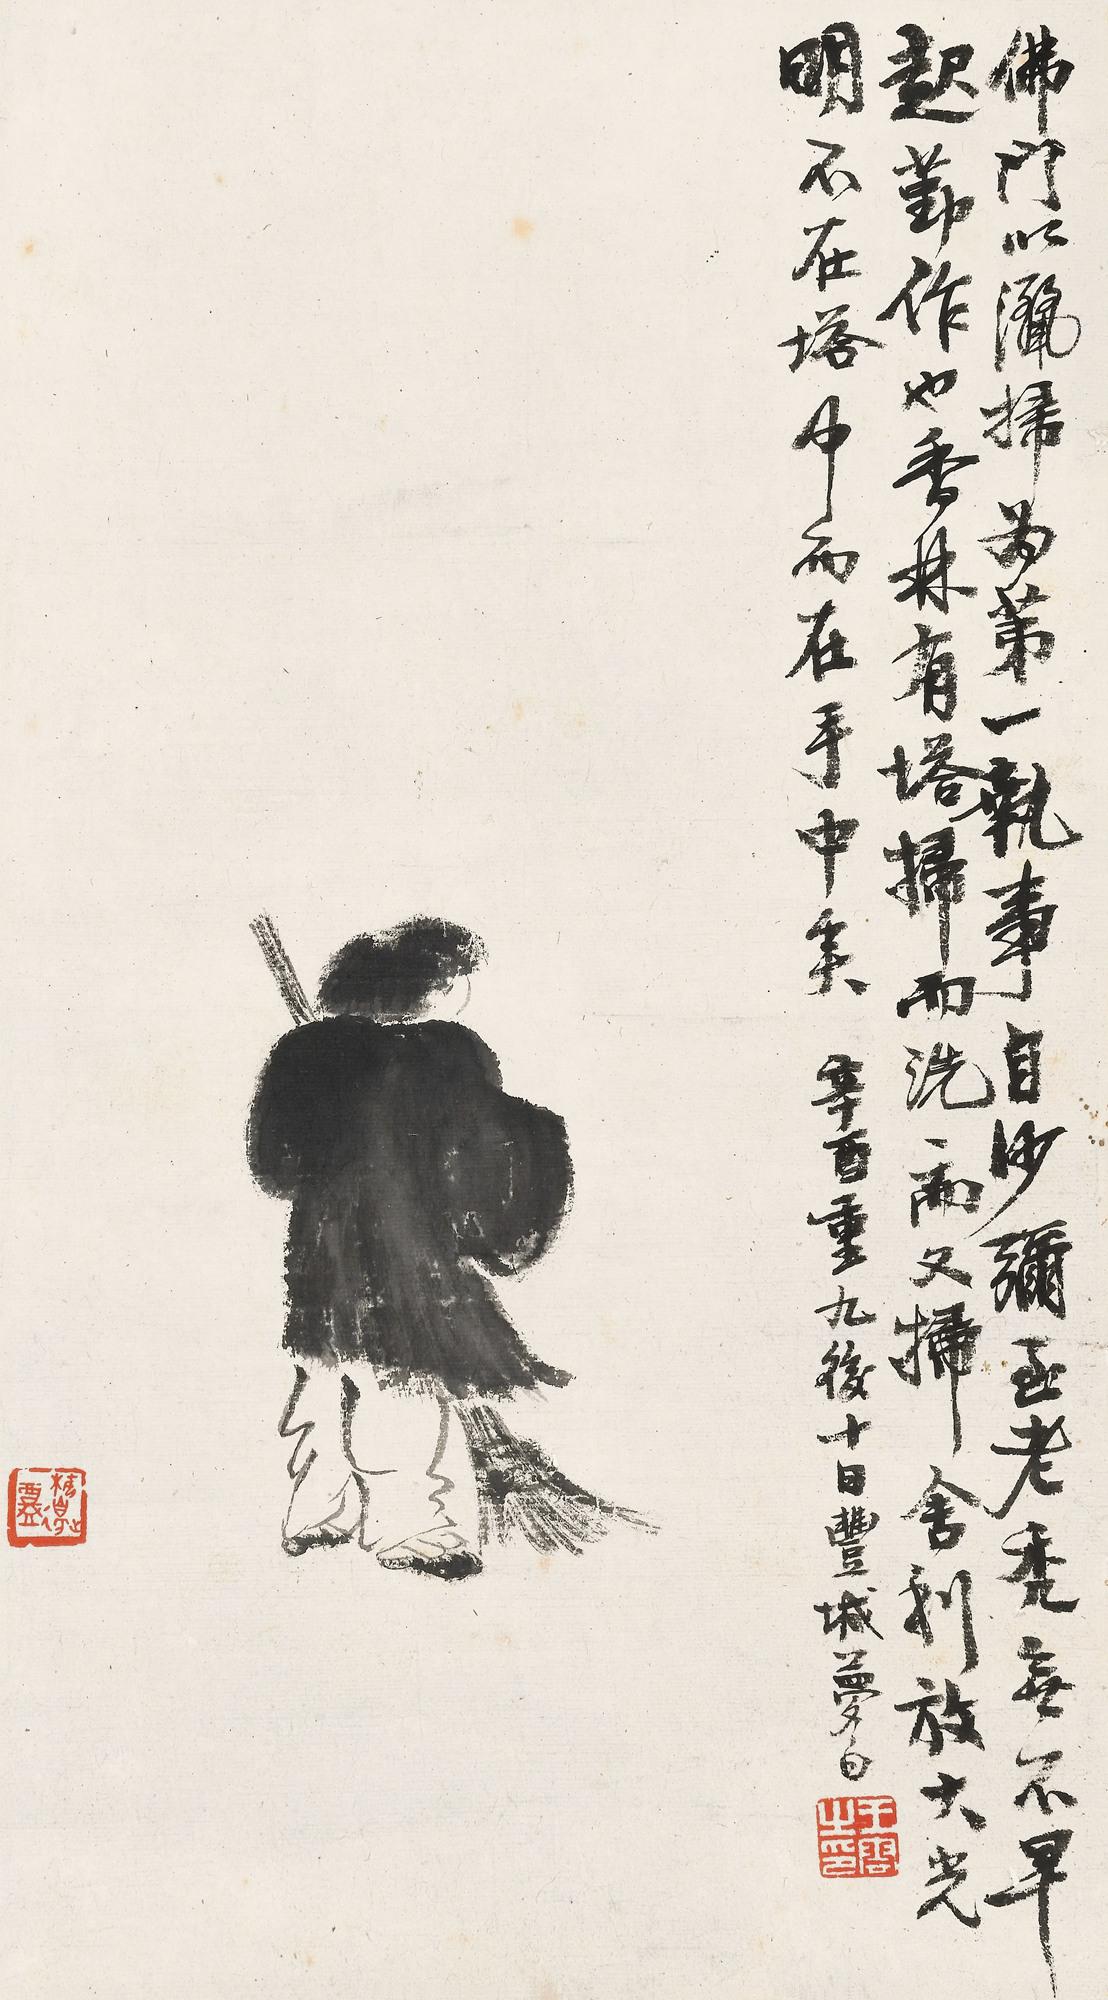 佛門以灑掃為第一執事自沙彌至老禿無不早
起勤作也香林有塔掃而洗而又掃舍利放大光
明不在塔中而在手中矣 辛酉重九後十日豐城夢白
王雲之印